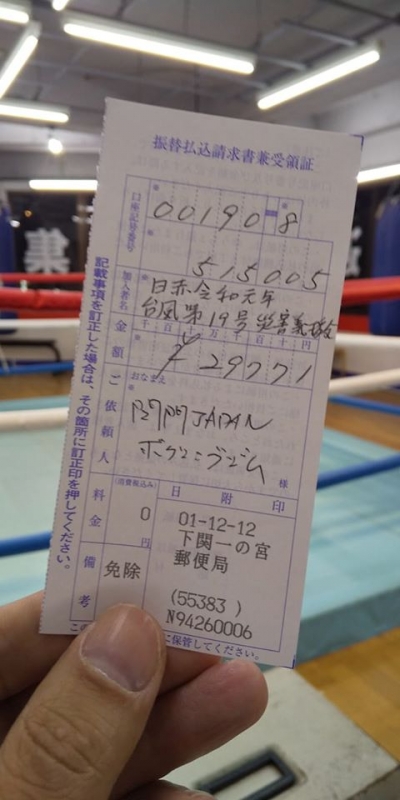 振替払込請求書兼受領証
口座記号番号
00190 8
515005
加入者名
日赤令和元年
台風第19号災害義援金
金額
千百十万千百十円
¥29771
おなまえ
ご依頼人
関門JAPAN
ボクシングジム
様
料金
(消費税込み)
0
円
日附印
01-12-12
下関一の宮
郵便局
(55383 )
N94260006
備考
免除
記載事項を訂正した場合は、その箇所に訂正印を押してください。
に保管してください。
業